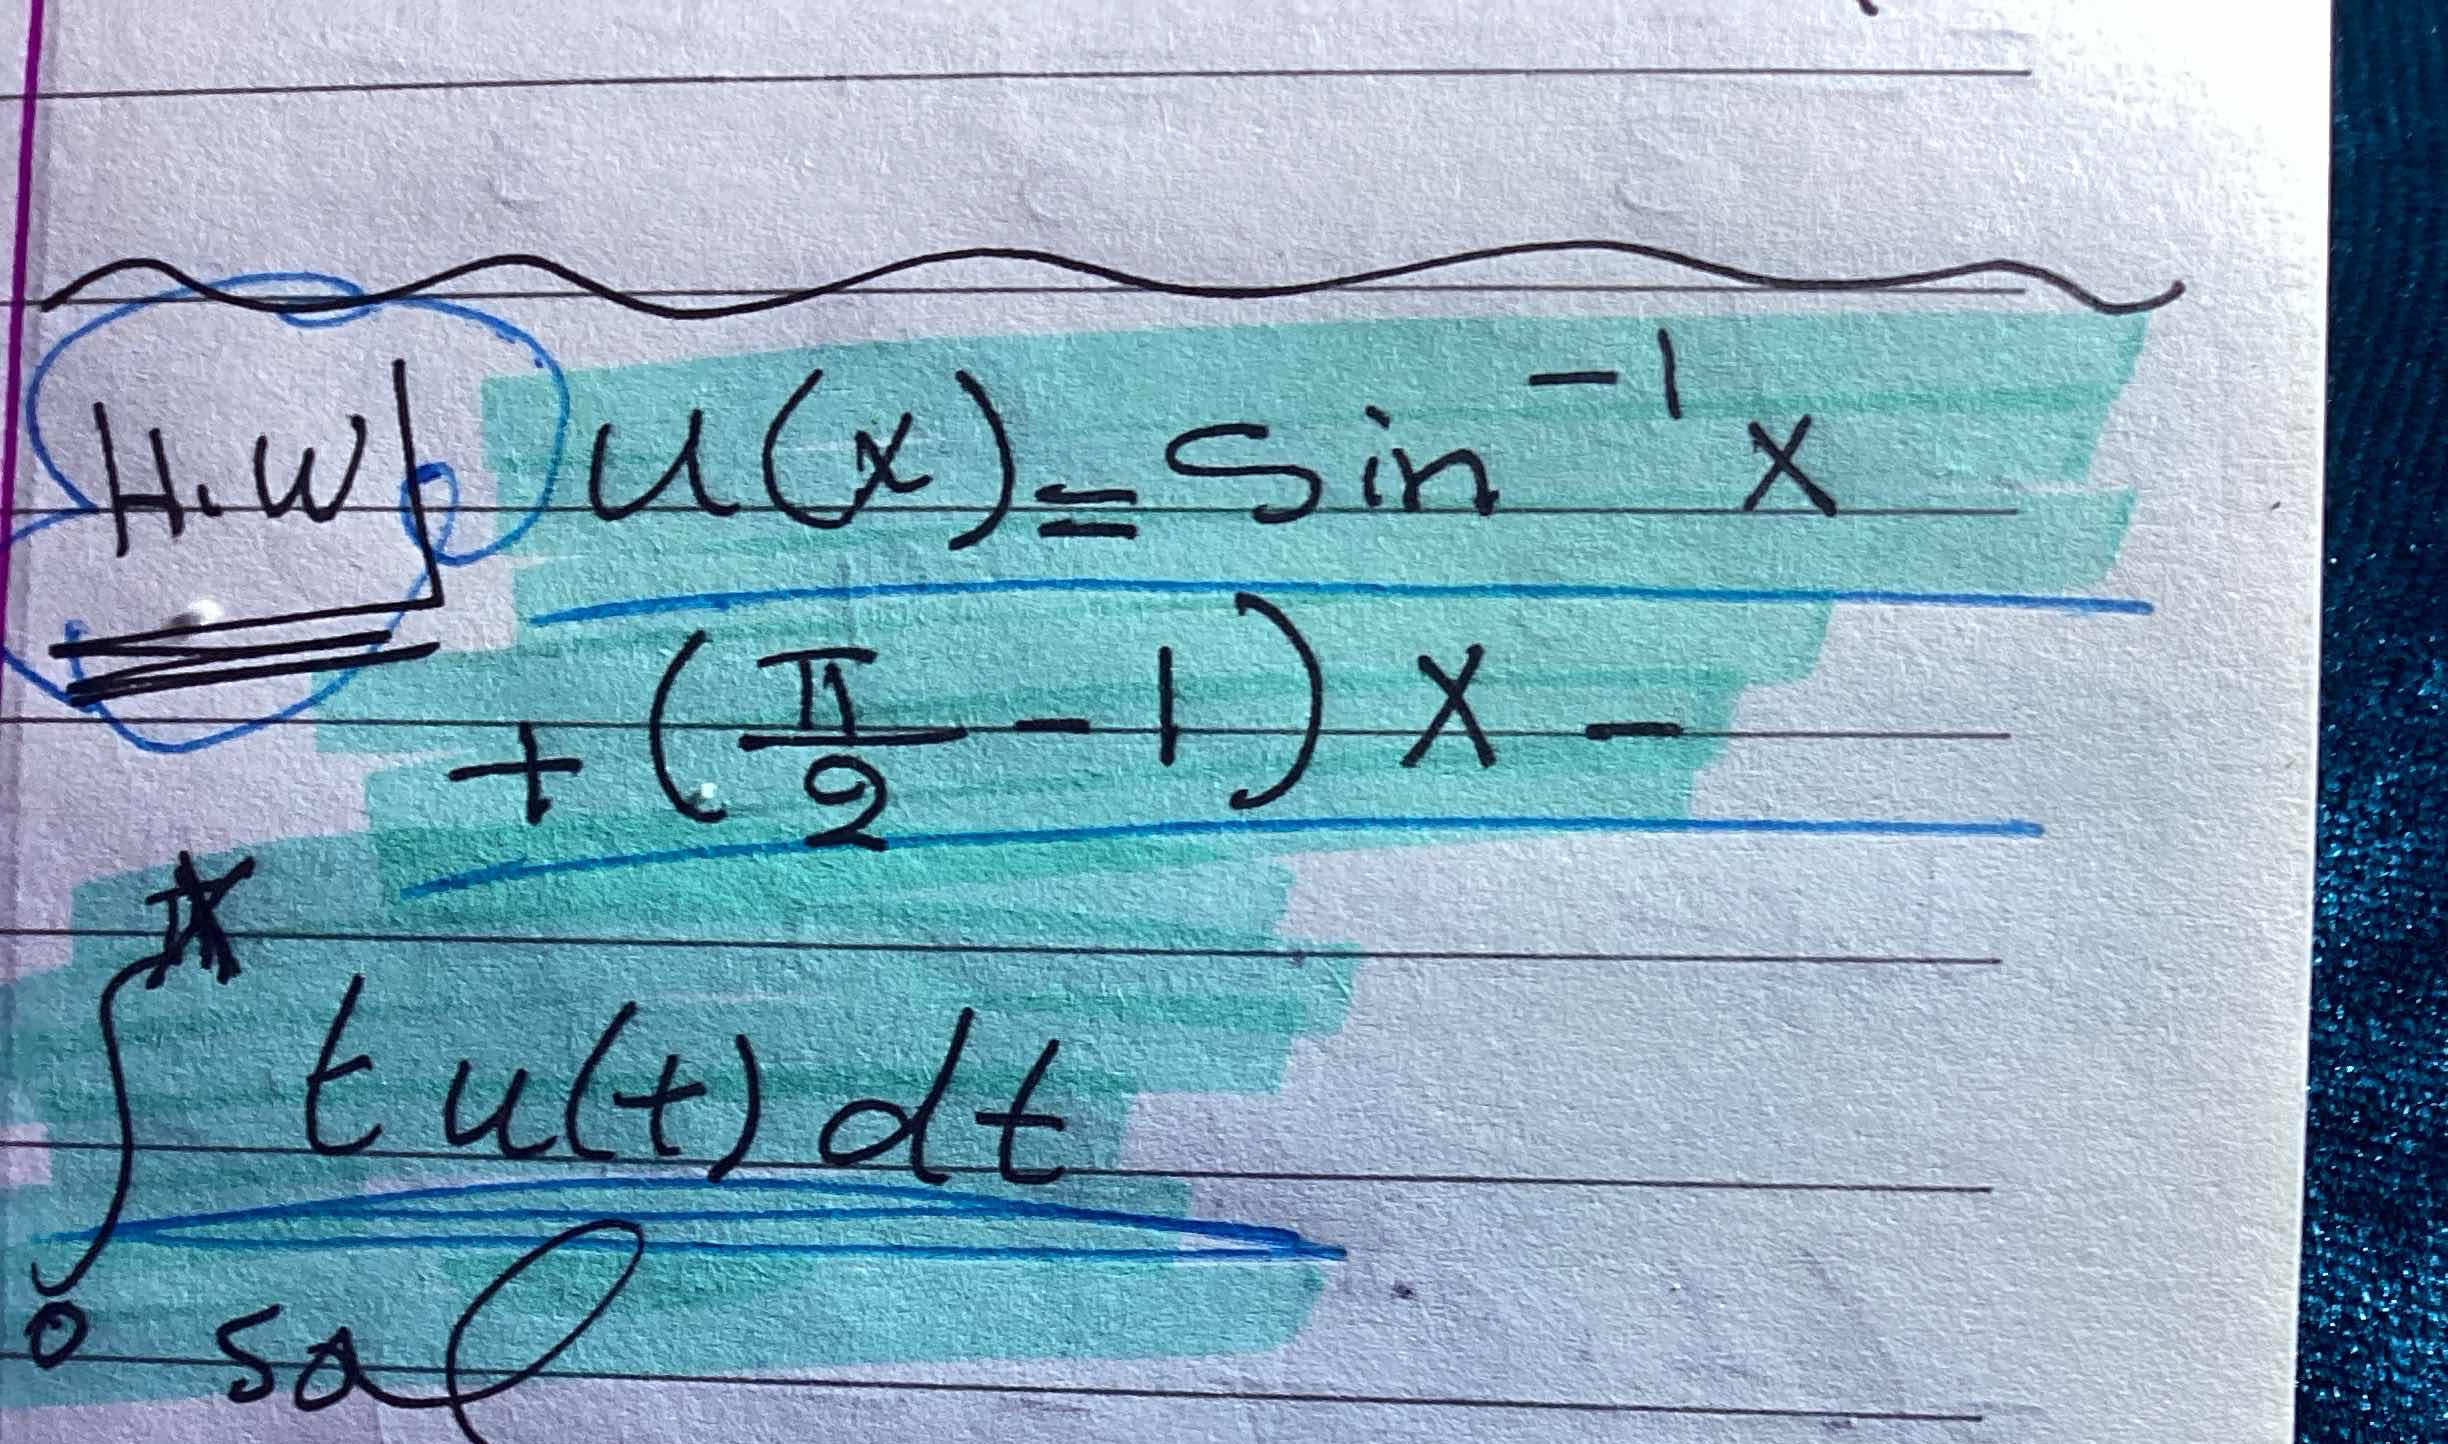 H.W u(x) = sin⁻¹ x
+ (π/2 - 1) x -
∫₀ t u(t) dt
sol